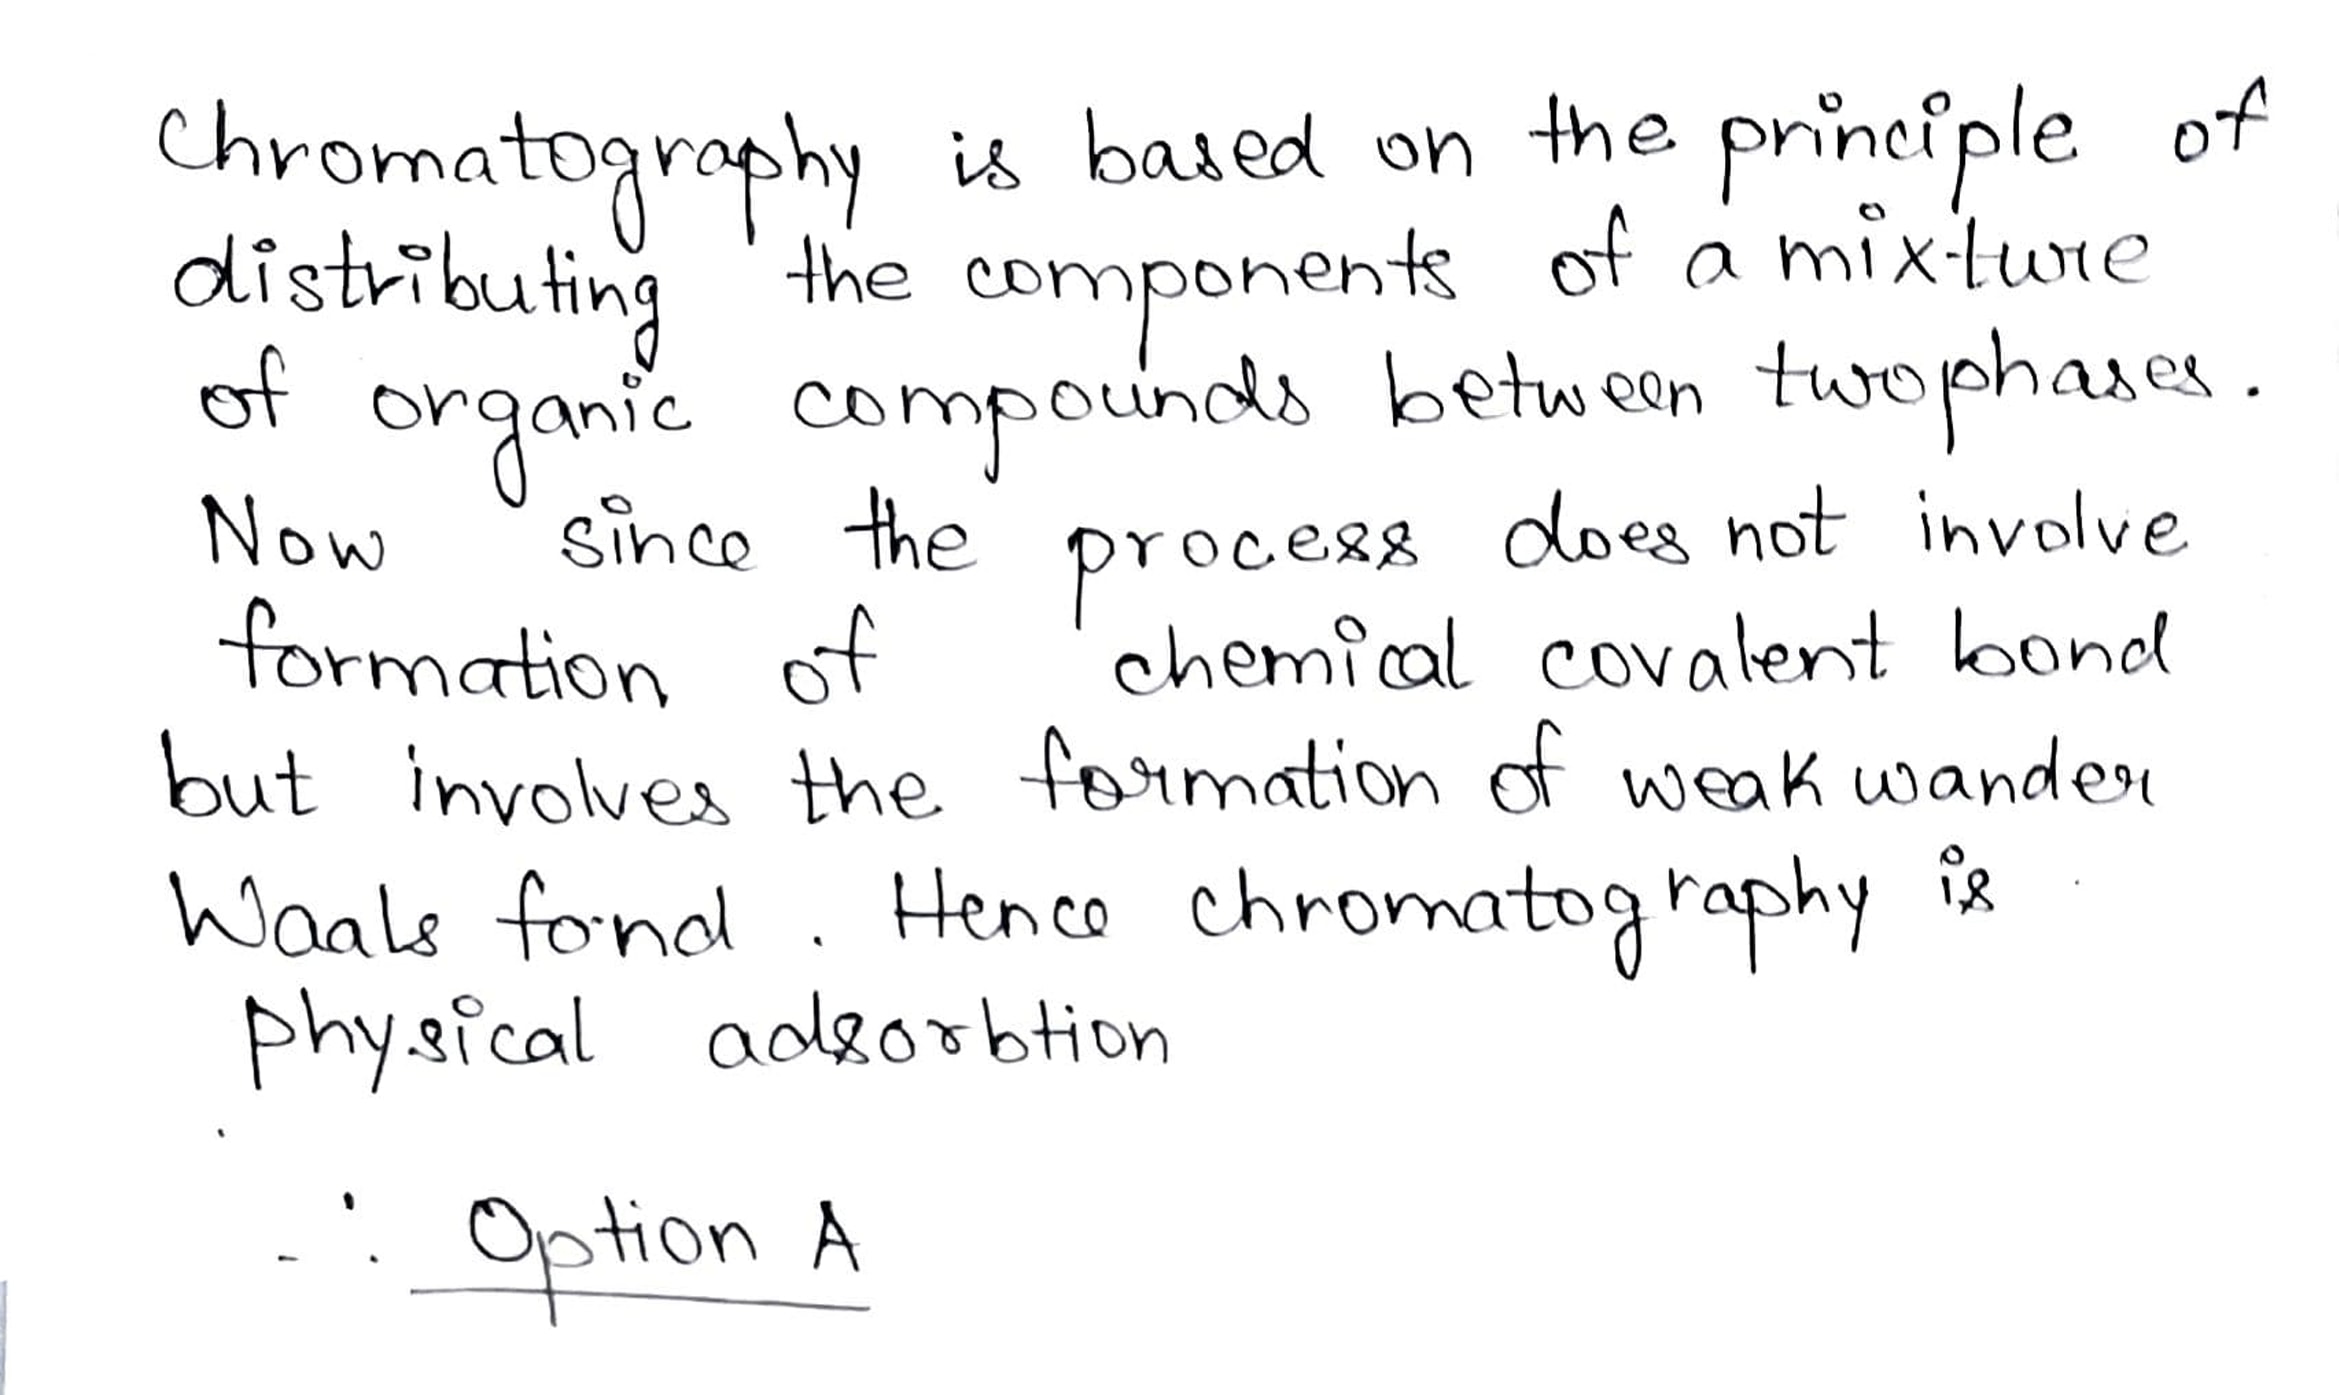 Chromatography is based on the principle of
distributing the components of a mixture
of organic compounds between two phases.
Now since the process does not involve
formation of chemical covalent bond
but involves the formation of weak wander
Waals fond. Hence chromatography is
physical adsorbtion
∴ Option A